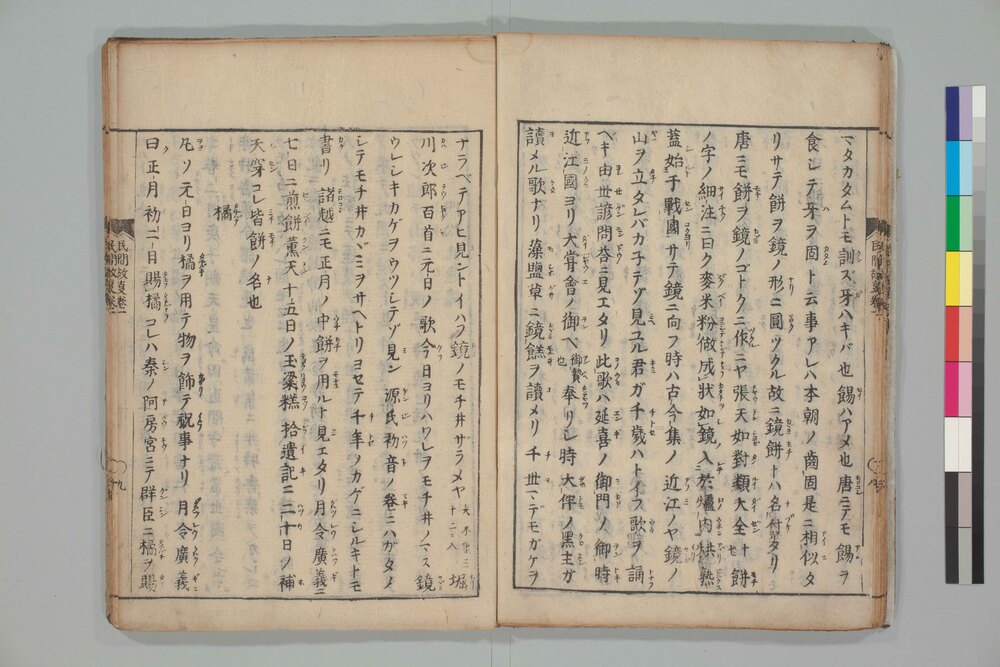 マタカタムトモ訓ス牙ハキバ也餳ハアメ也唐ニテモ餳ヲ
食シテ牙ヲ固ト云事アレハ本朝ノ齒固是ニ相似タ
リサテ餅ヲ鏡ノ形ニ圓ツクル故ニ鏡餅トハ名付タリ
唐ニモ餅ヲ鏡ノゴトクニ作ニヤ張天如對類大全十七餅
ノ字ノ細注ニ曰ク麥米粉做成狀如鏡入於爐内烘熟
蓋始于戰國サテ鏡ニ向フ時ハ古今集ノ近江ノヤ鏡ノ
山ヲ立タレバカ子テゾ見ユル君ガ千歳ハトイフ歌ヲ誦
ベキ由世諺問答ニ見エタリ此歌ハ延喜ノ御門ノ御時
近江國ヨリ大甞會ノ御ベ也御贄奉リシ時大伴ノ黒主ガ
讀メル歌ナリ藻鹽草ニ鏡餻ヲ讀メリ千世マデモガゲヲ
ナラベテアヒ見ントイハフ鏡ノモチ井ザラメヤ 堀
川次郎百首ニ元日ノ歌今日ヨリハワレヲモチ井ノマス鏡
ウレシキカゲヲウツシテゾ見ン源氏初音ノ卷ニハガタメ
シテモチ井カヾミヲサヘトリヨセテ千年ノカゲニシルキトモ
書リ諸越ニモ正月ノ中餅ヲ用ルト見エタリ月令廣義ニ
七日ニ煎餅薫天十五日ノ玉粱糕拾遺記ニ二十日ノ補
天穿コレ皆餅ノ名也
橘
凡ソ元日ヨリ橘ヲ用テ物ヲ飾テ祝事ナリ月令廣義
曰正月初二日賜橘コレハ秦ノ阿房宮ニテ群臣ニ橘ヲ賜
民間故事卷一
九